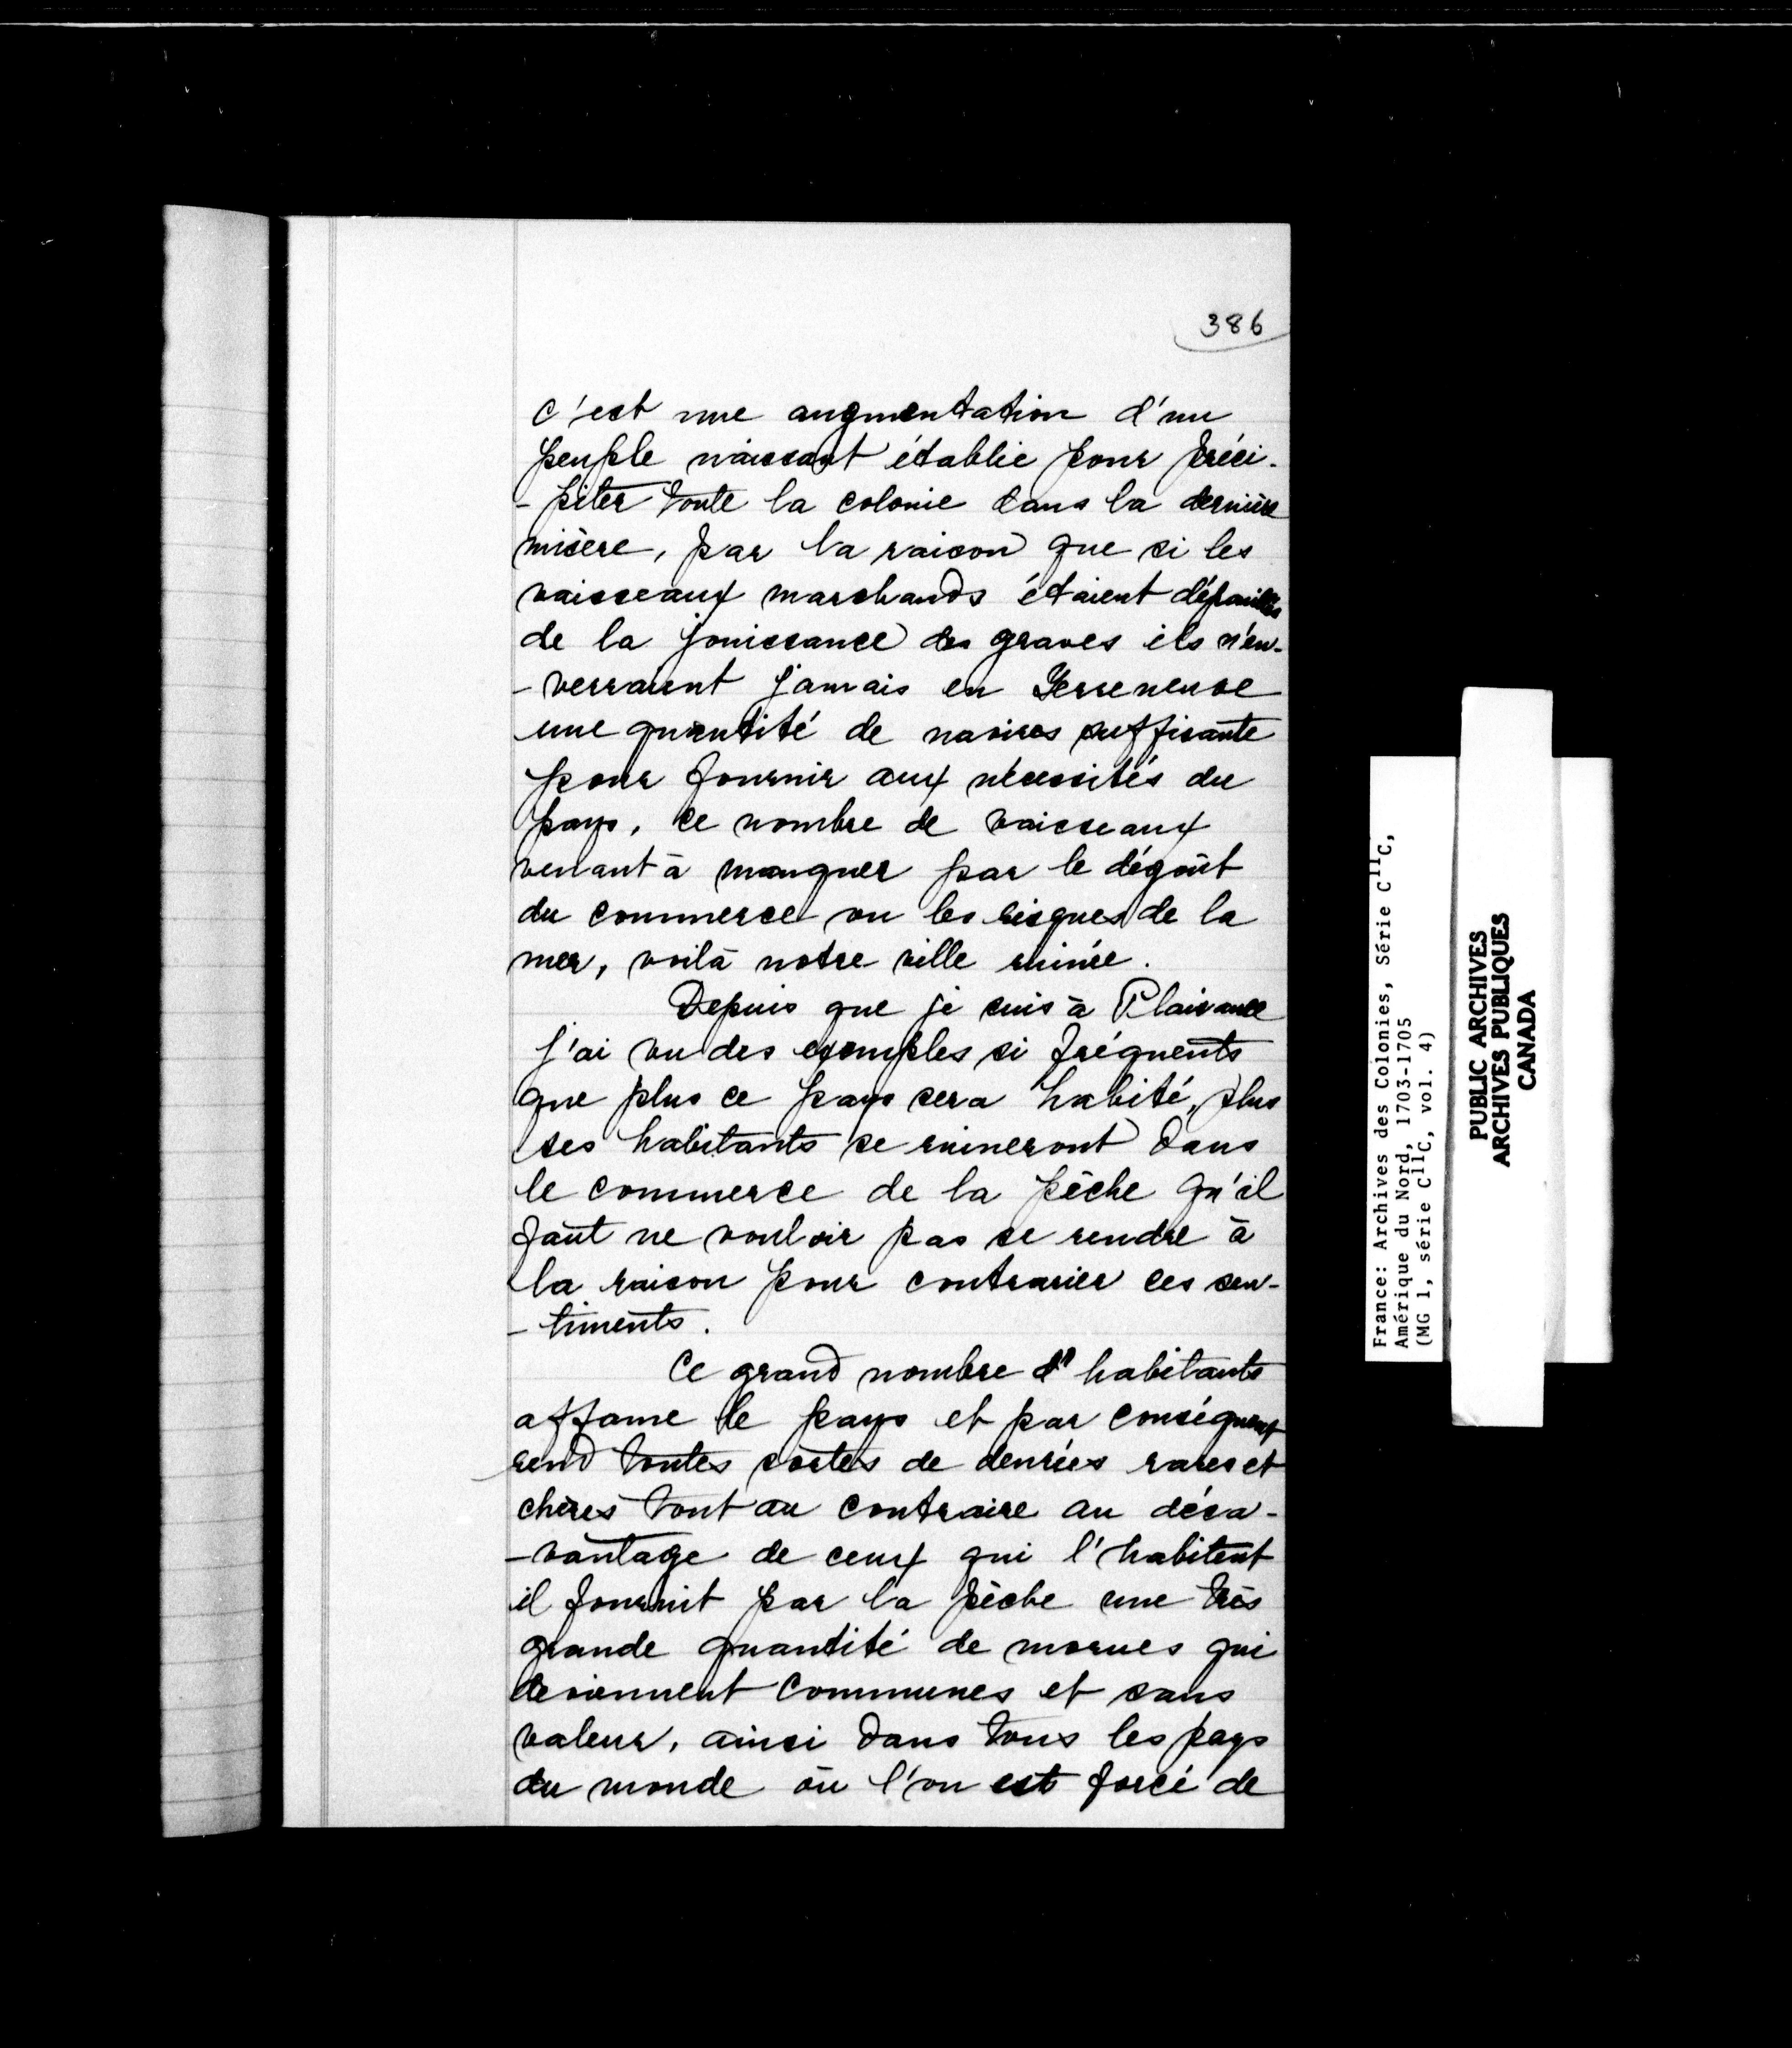 386
c'est une augmentation d'un
peuple naissant établie pour préci-
-piter toute la colonie dans la dernière
misère, par la raison que si les
vaisseaux marchands étaient dépouillés
de la jouissance des graves ils n'en-
-verraient jamais en Terreneuve
une quantité de navires suffisante
pour fournir aux nécessités du
pays, ce nombre de vaisseaux
venant à manquer par le dégoût
du commerce ou les risques de la
mer, voilà notre ville ruinée.
Depuis que je suis à Plaisance
j'ai vu des exemples si fréquents
que plus ce pays sera habité, plus
ses habitants se ruineront dans
le commerce de la pêche qu'il
faut ne vouloir pas se rendre à
la raison pour contrarier ces sen-
-timents.
Ce grand nombre d'habitants
affame le pays et par conséquent
rend toutes sortes de denrées rares et
chères tout au contraire au désa-
-vantage de ceux qui l'habitent
il fournit par la pêche une très
grande quantité de morues qui
deviennent communes et sans
valeur, ainsi dans tous les pays
du monde où l'on est forcé de
France: Archives des Colonies, Série C11C,
Amérique du Nord, 1703-1705
(MG 1, série C11C, vol. 4)
PUBLIC ARCHIVES
ARCHIVES PUBLIQUES
CANADA